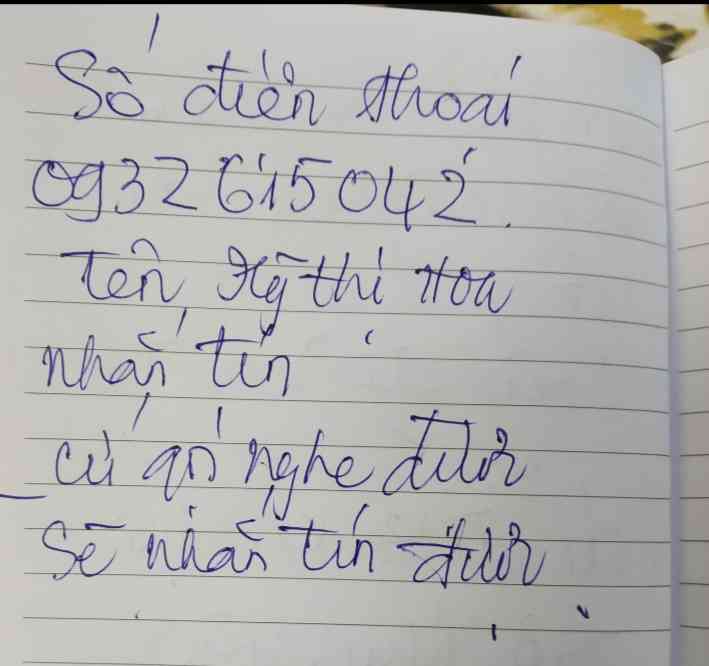 Số điện thoại
0932615042.
Tên Hỹ thị Hoa
nhắn tin
cứ gọi nghe được
sẽ nhắn tin được